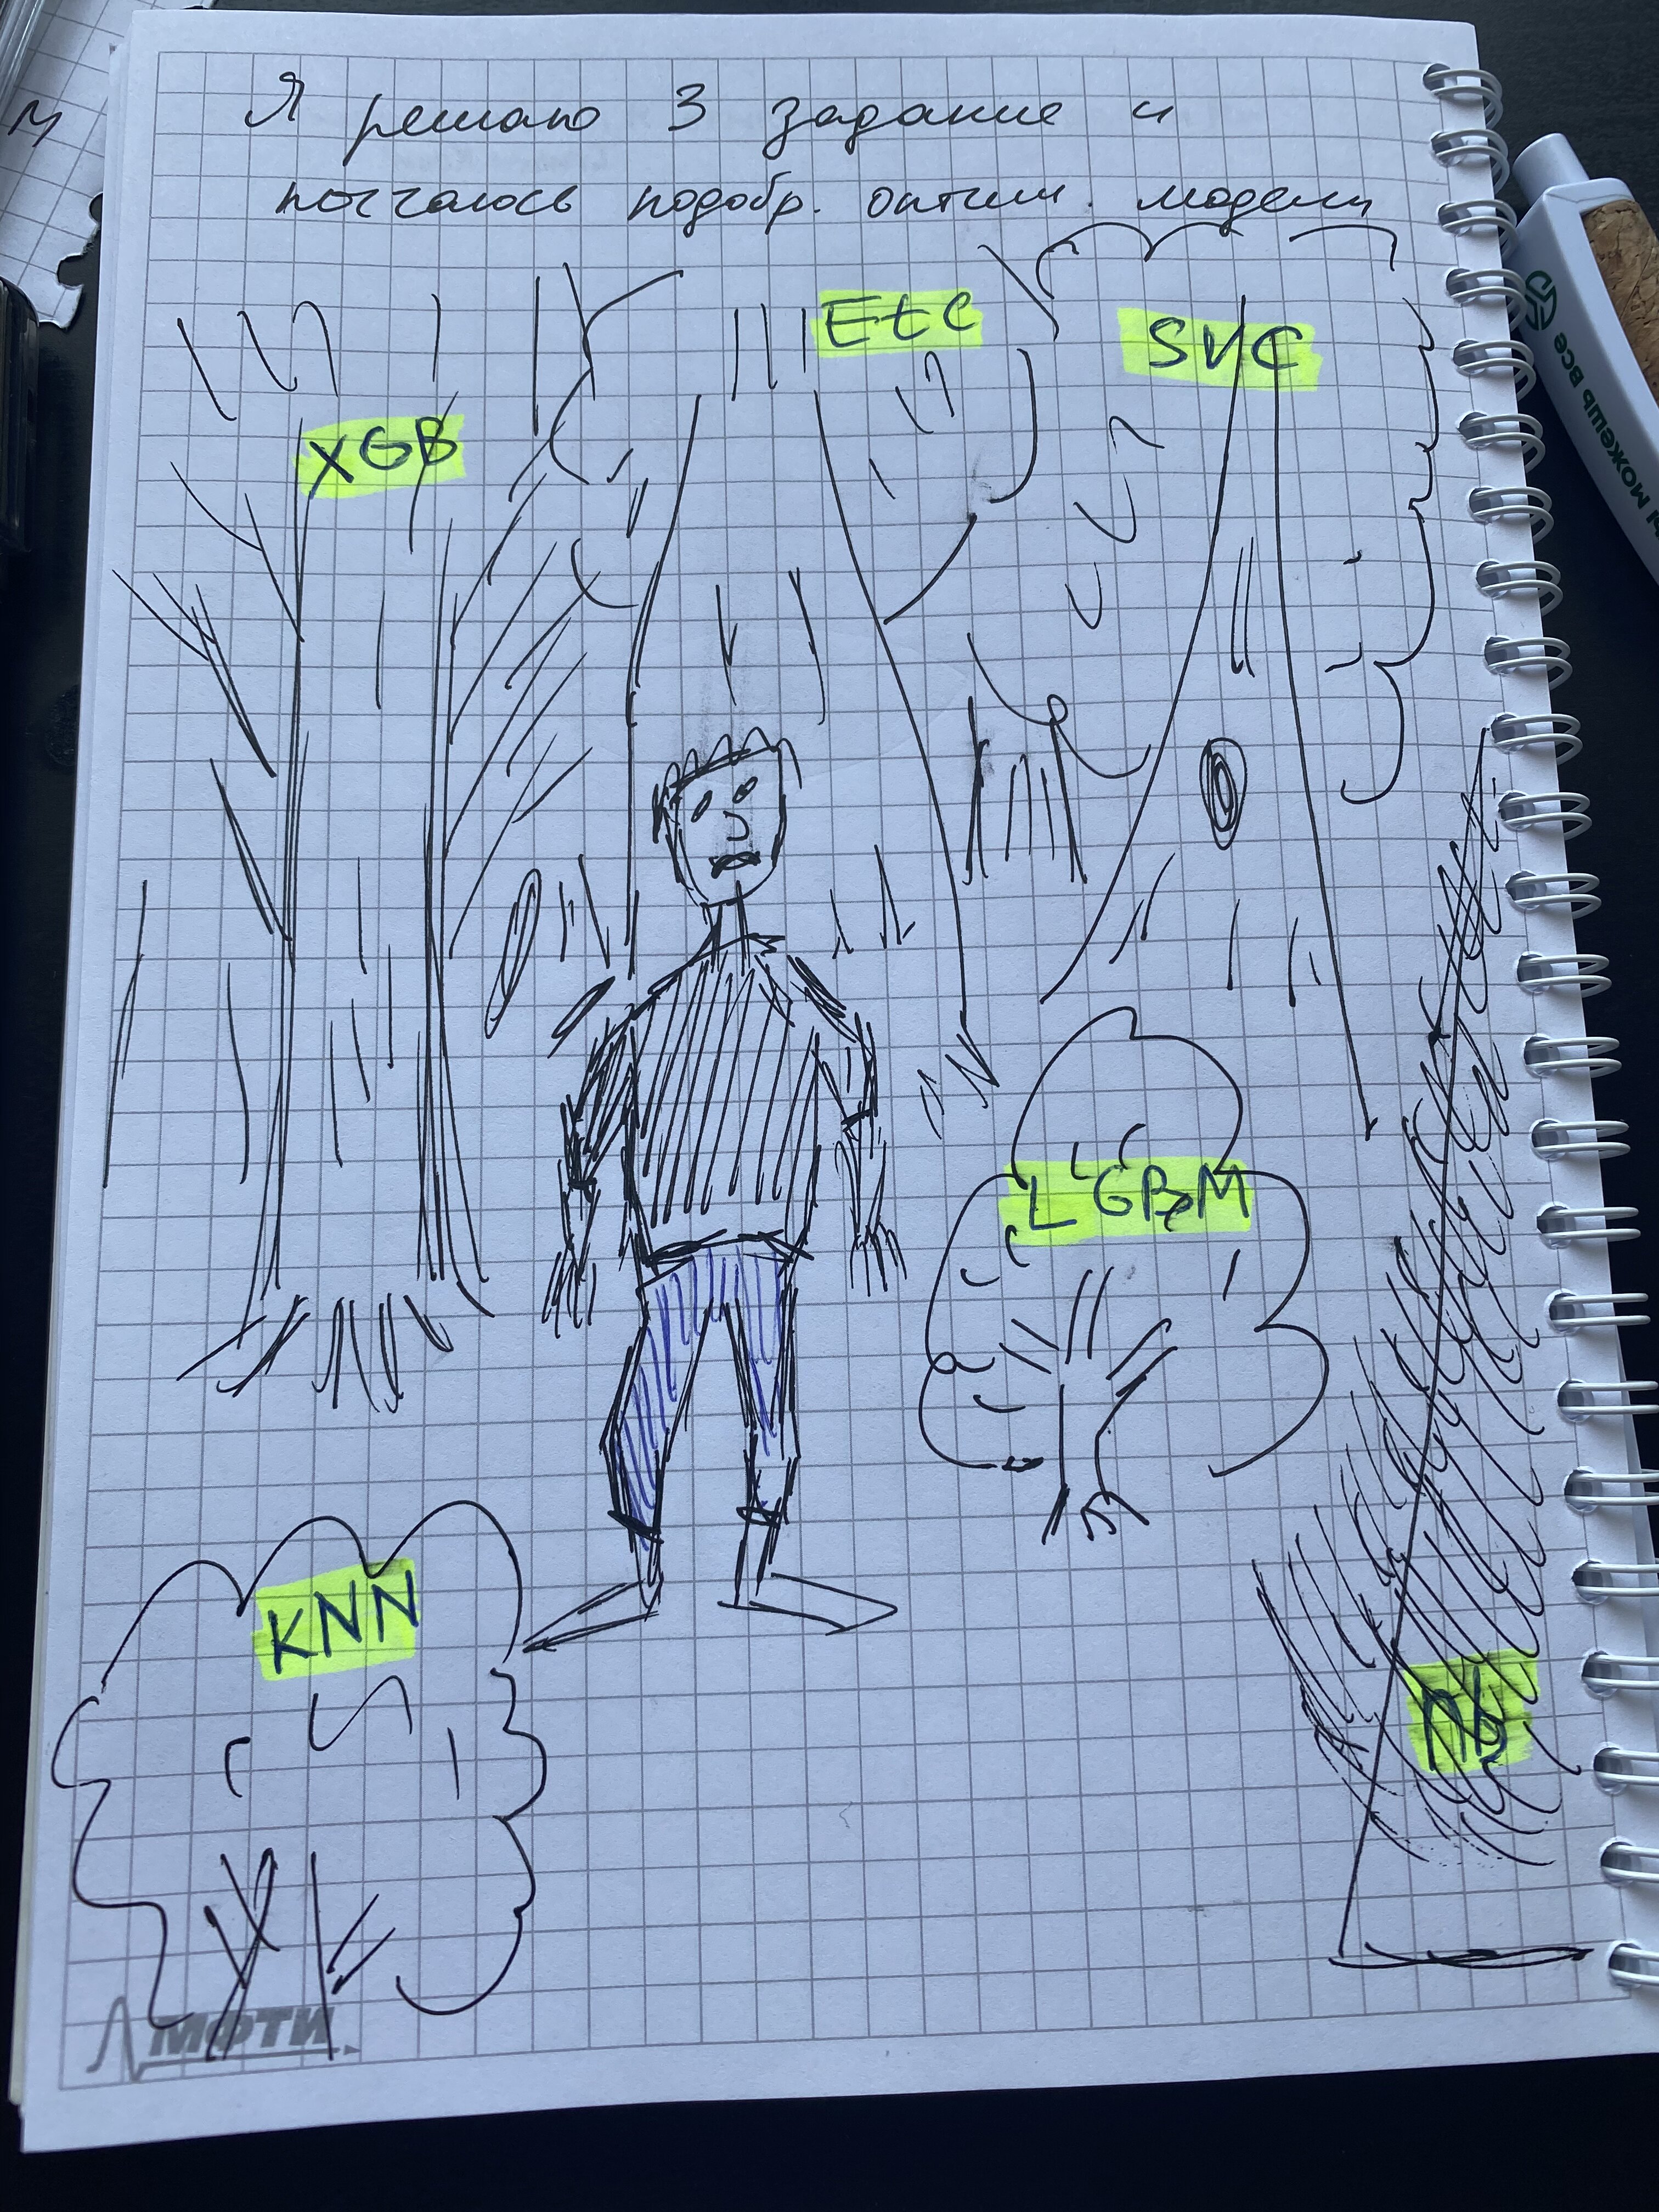 Я решаю 3 задание и
пытаюсь подобр. оптим. модели
Etc
SVC
XGB
LGBM
KNN
Nb
МФТИ
Ы МОЖЕШЬ ВСЕ